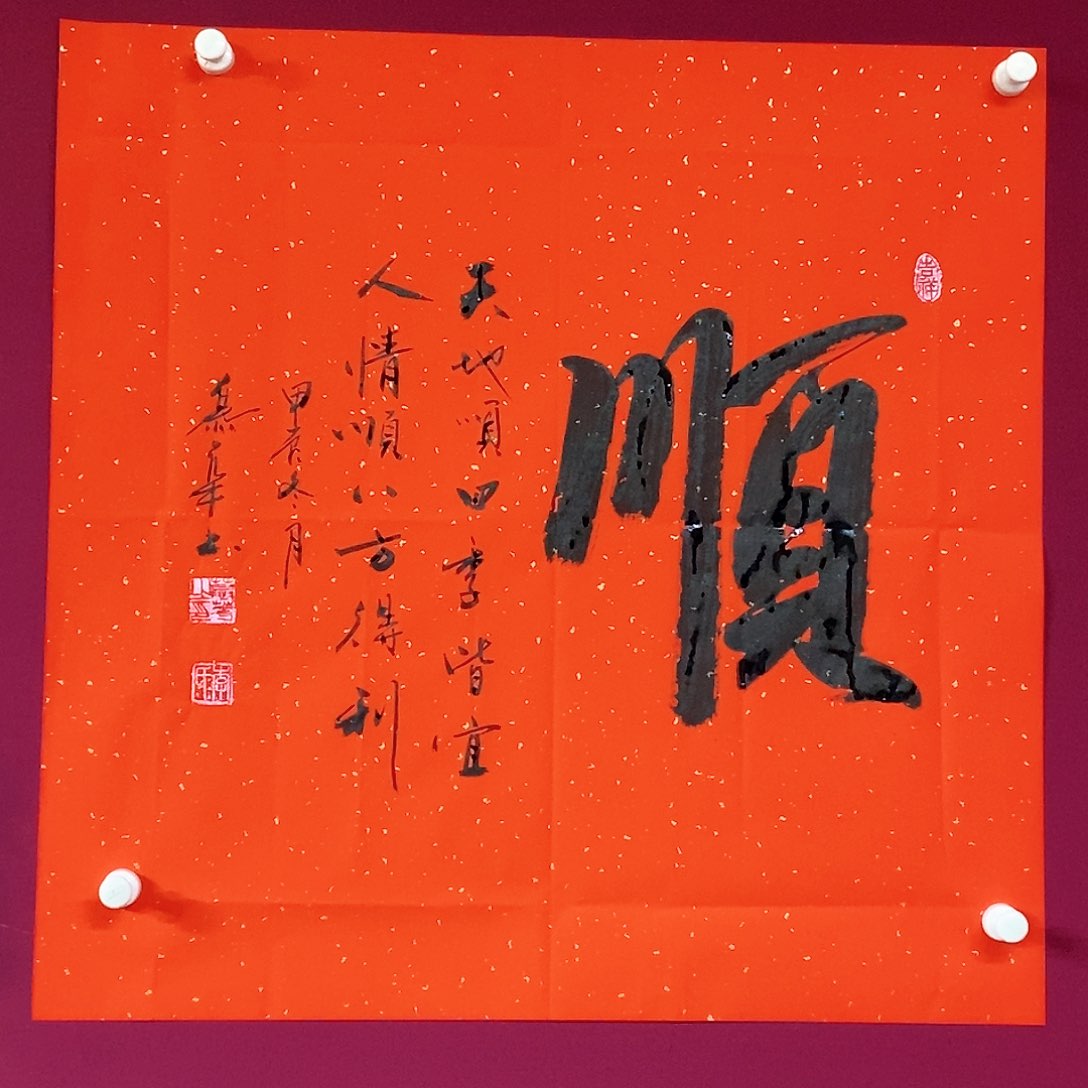 吉祥
順
天地順四季皆宜
人情順八方得利
甲辰冬月
慕華書